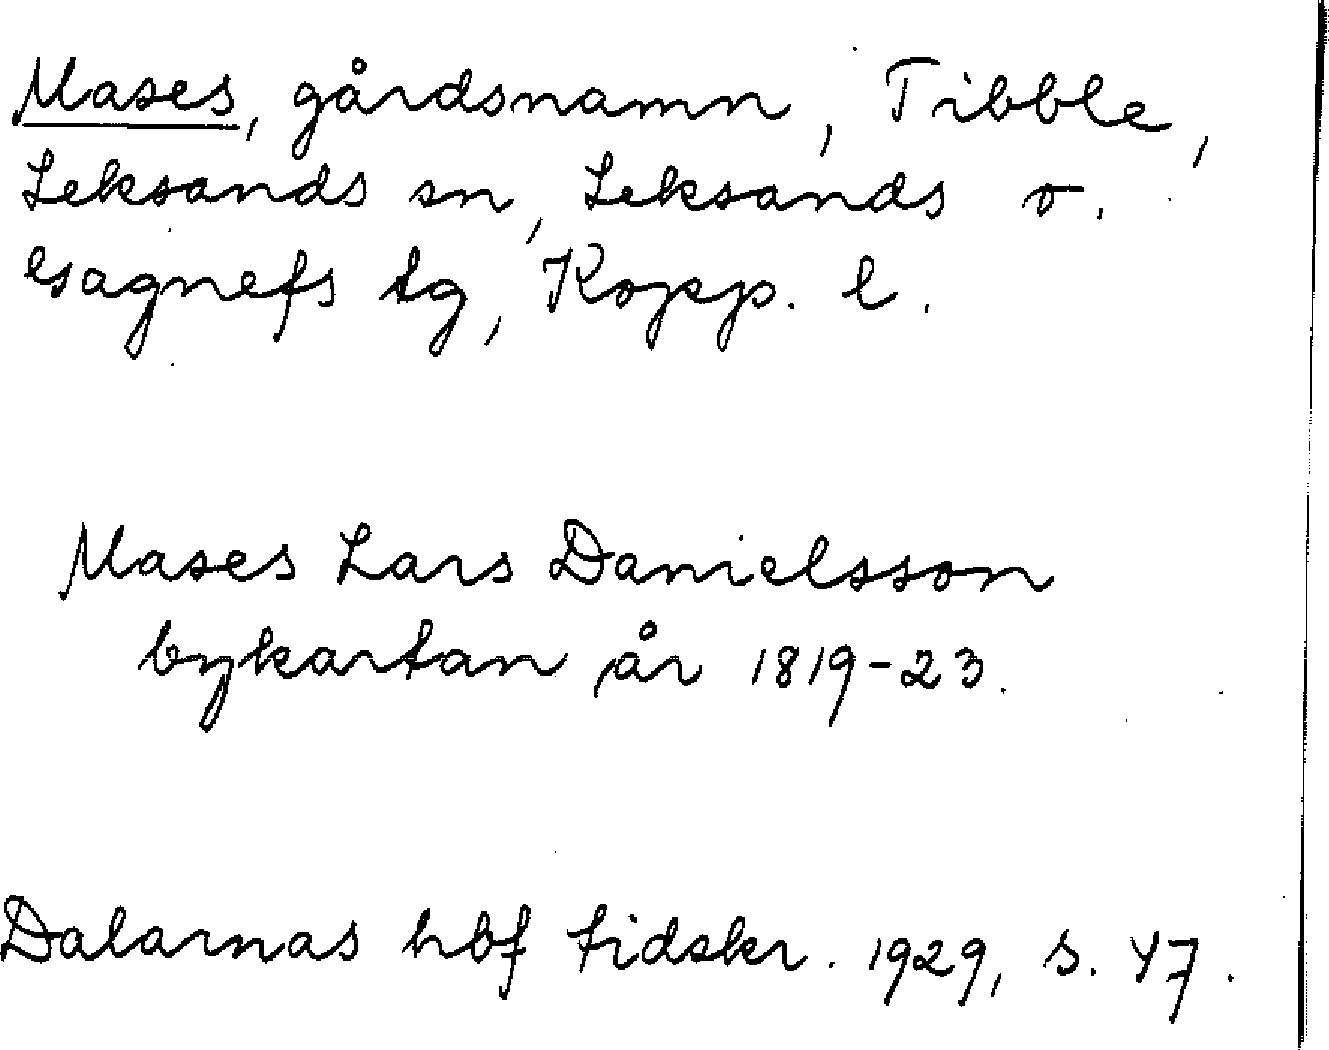 Mases, gårdsnamn, Tibble,
Leksands sn, Leksands o.
Gagnefs tg, Kopp. l.
Mases Lars Danielsson
bykartan år 1819-23.
Dalarnas hbf tidskr. 1929, s. 47.